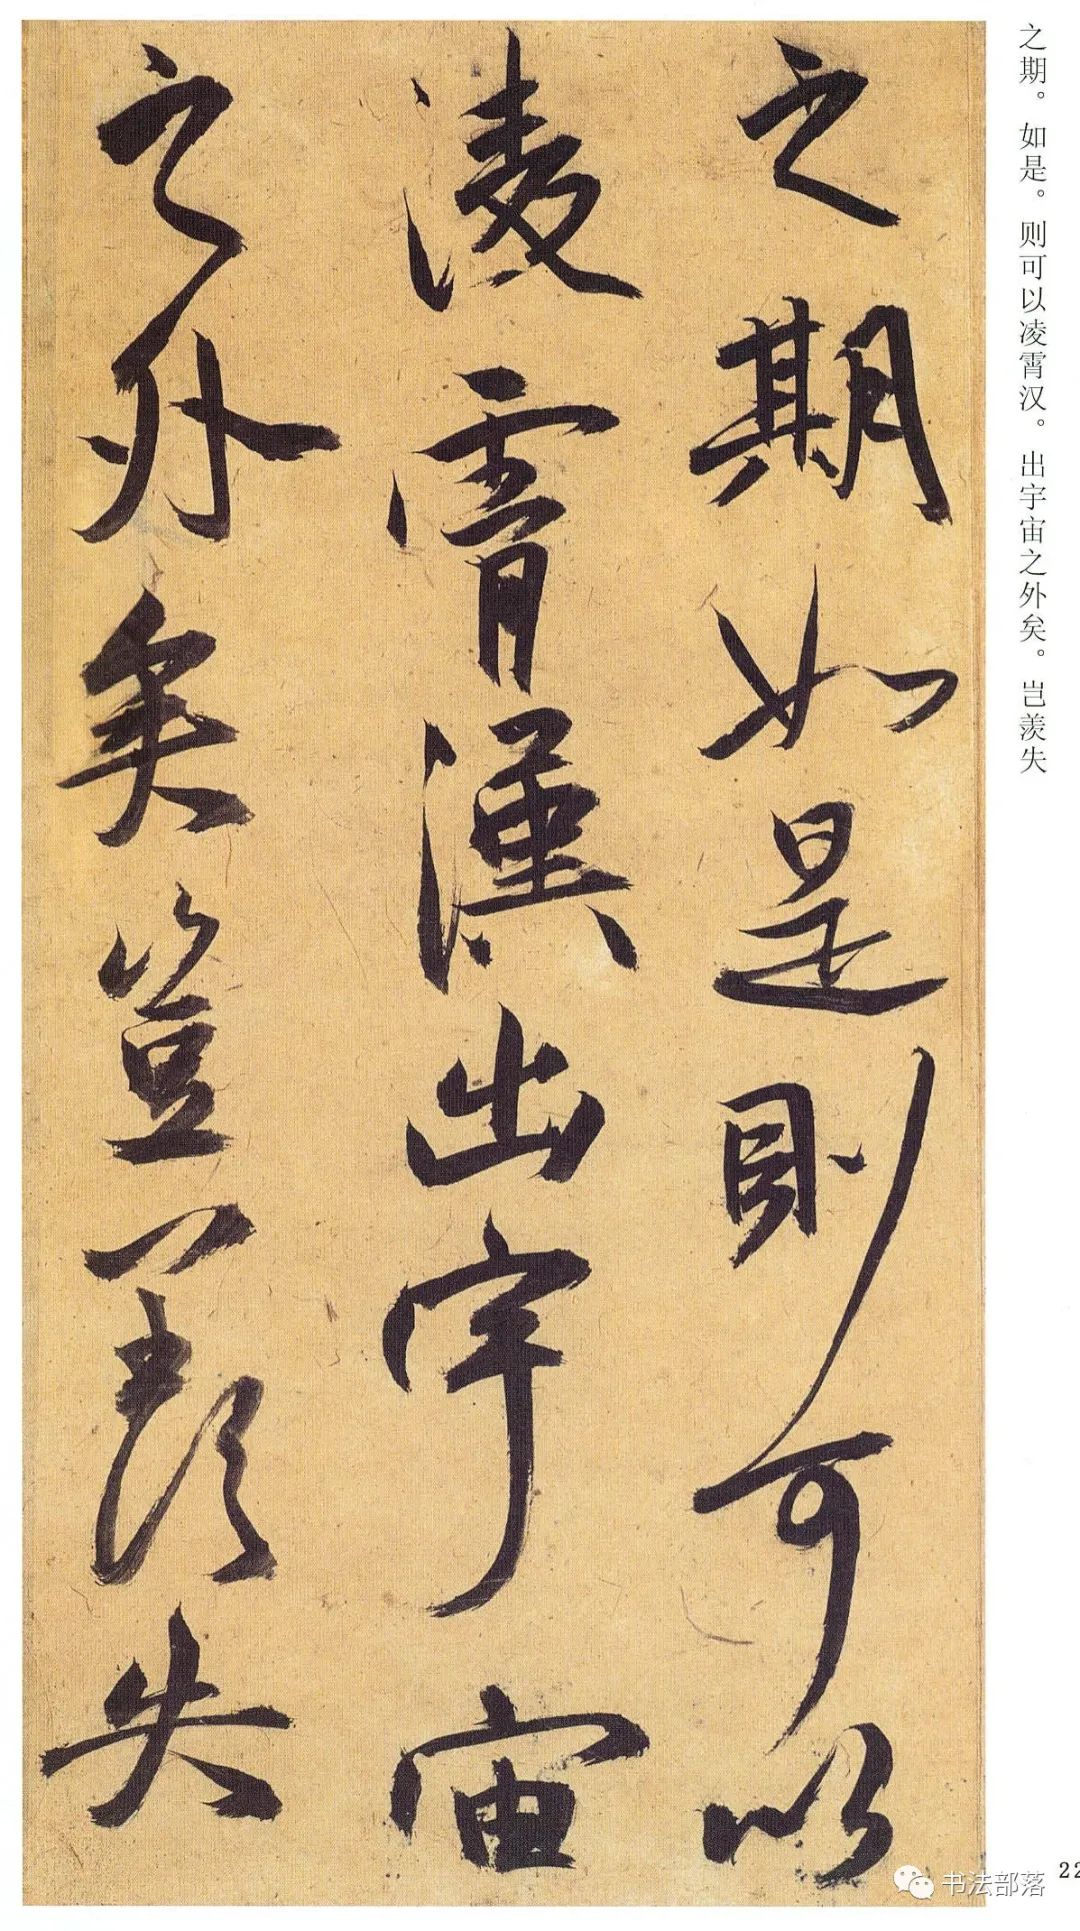 之期。如是。则可以凌霄汉。出宇宙之外矣。岂羡失
之期如是則可以
凌霄漢出宇宙
之外矣豈羨失
22
书法部落